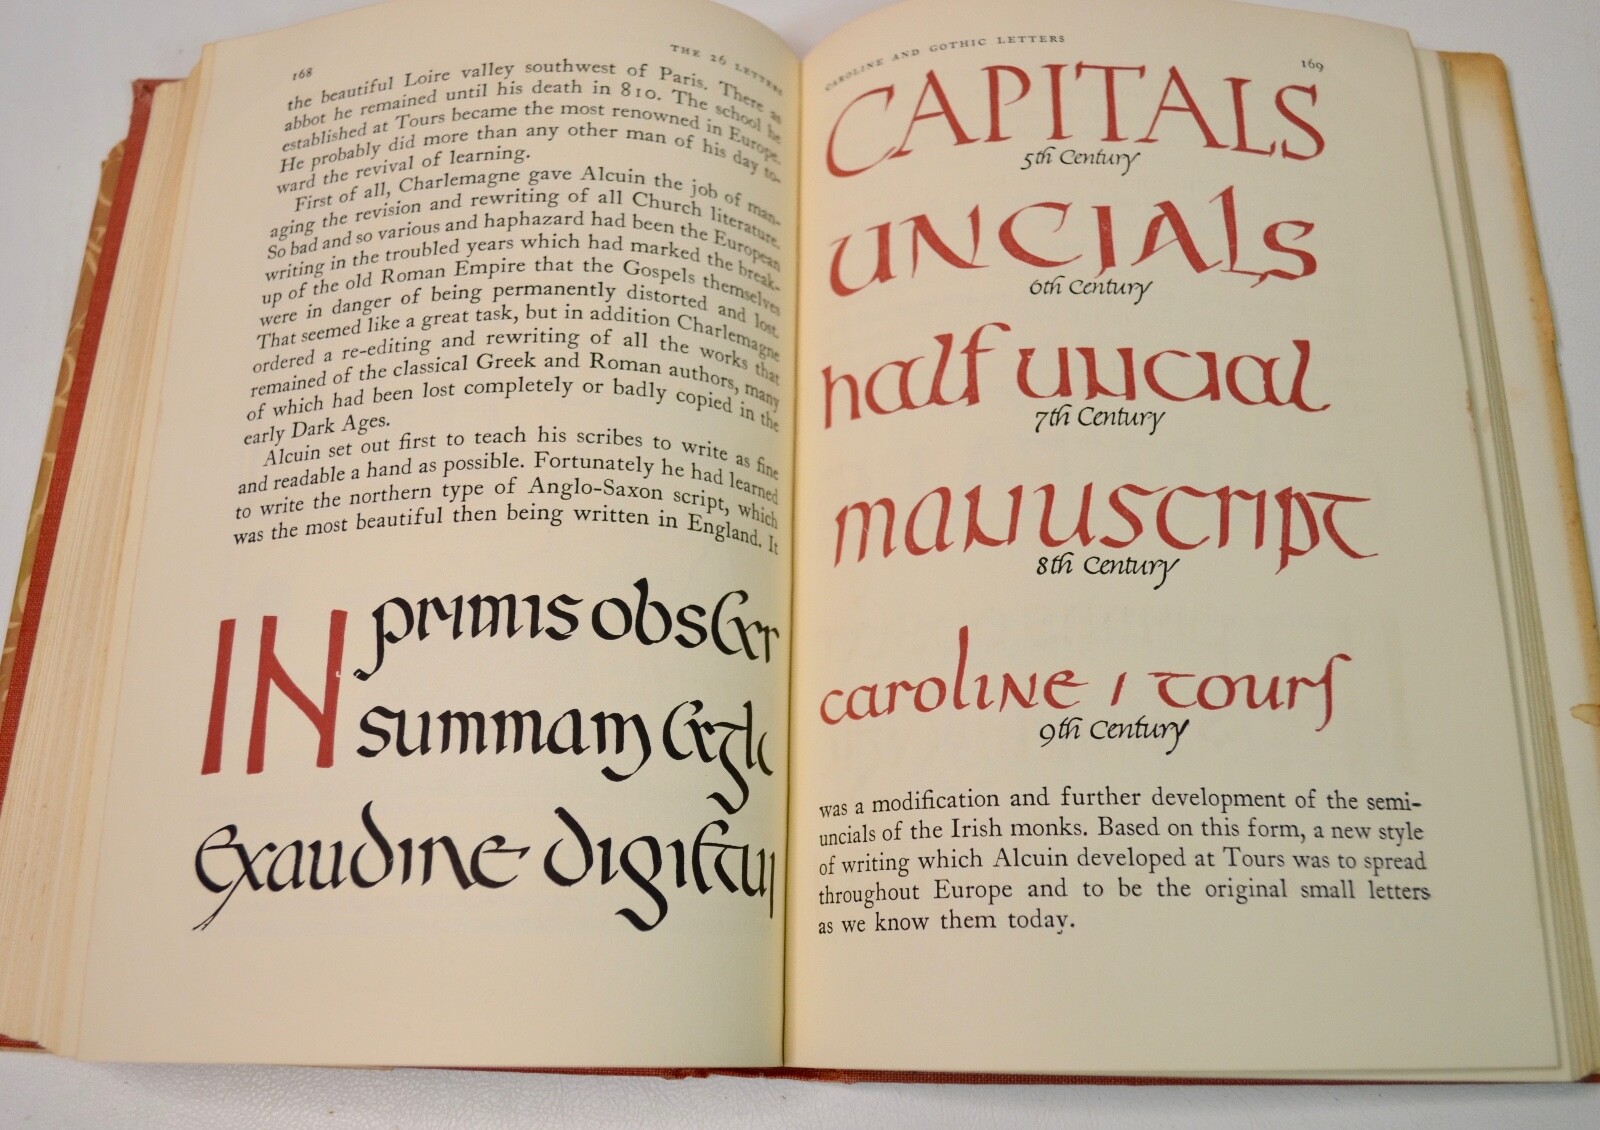 168
THE 26 LETTERS
the beautiful Loire valley southwest of Paris. There as
abbot he remained until his death in 810. The school he
established at Tours became the most renowned in Europe.
He probably did more than any other man of his day to-
ward the revival of learning.
First of all, Charlemagne gave Alcuin the job of man-
aging the revision and rewriting of all Church literature.
So bad and so various and haphazard had been the European
writing in the troubled years which had marked the break-
up of the old Roman Empire that the Gospels themselves
were in danger of being permanently distorted and lost.
That seemed like a great task, but in addition Charlemagne
ordered a re-editing and rewriting of all the works that
remained of the classical Greek and Roman authors, many
of which had been lost completely or badly copied in the
early Dark Ages.
Alcuin set out first to teach his scribes to write as fine
and readable a hand as possible. Fortunately he had learned
to write the northern type of Anglo-Saxon script, which
was the most beautiful then being written in England. It
IN primis obs
summam
exaudine
CAROLINE AND GOTHIC LETTERS
169
CAPITALS
5th Century
UNCIALS
6th Century
half uncial
7th Century
manuscript
8th Century
caroline / tours
9th Century
was a modification and further development of the semi-
uncials of the Irish monks. Based on this form, a new style
of writing which Alcuin developed at Tours was to spread
throughout Europe and to be the original small letters
as we know them today.